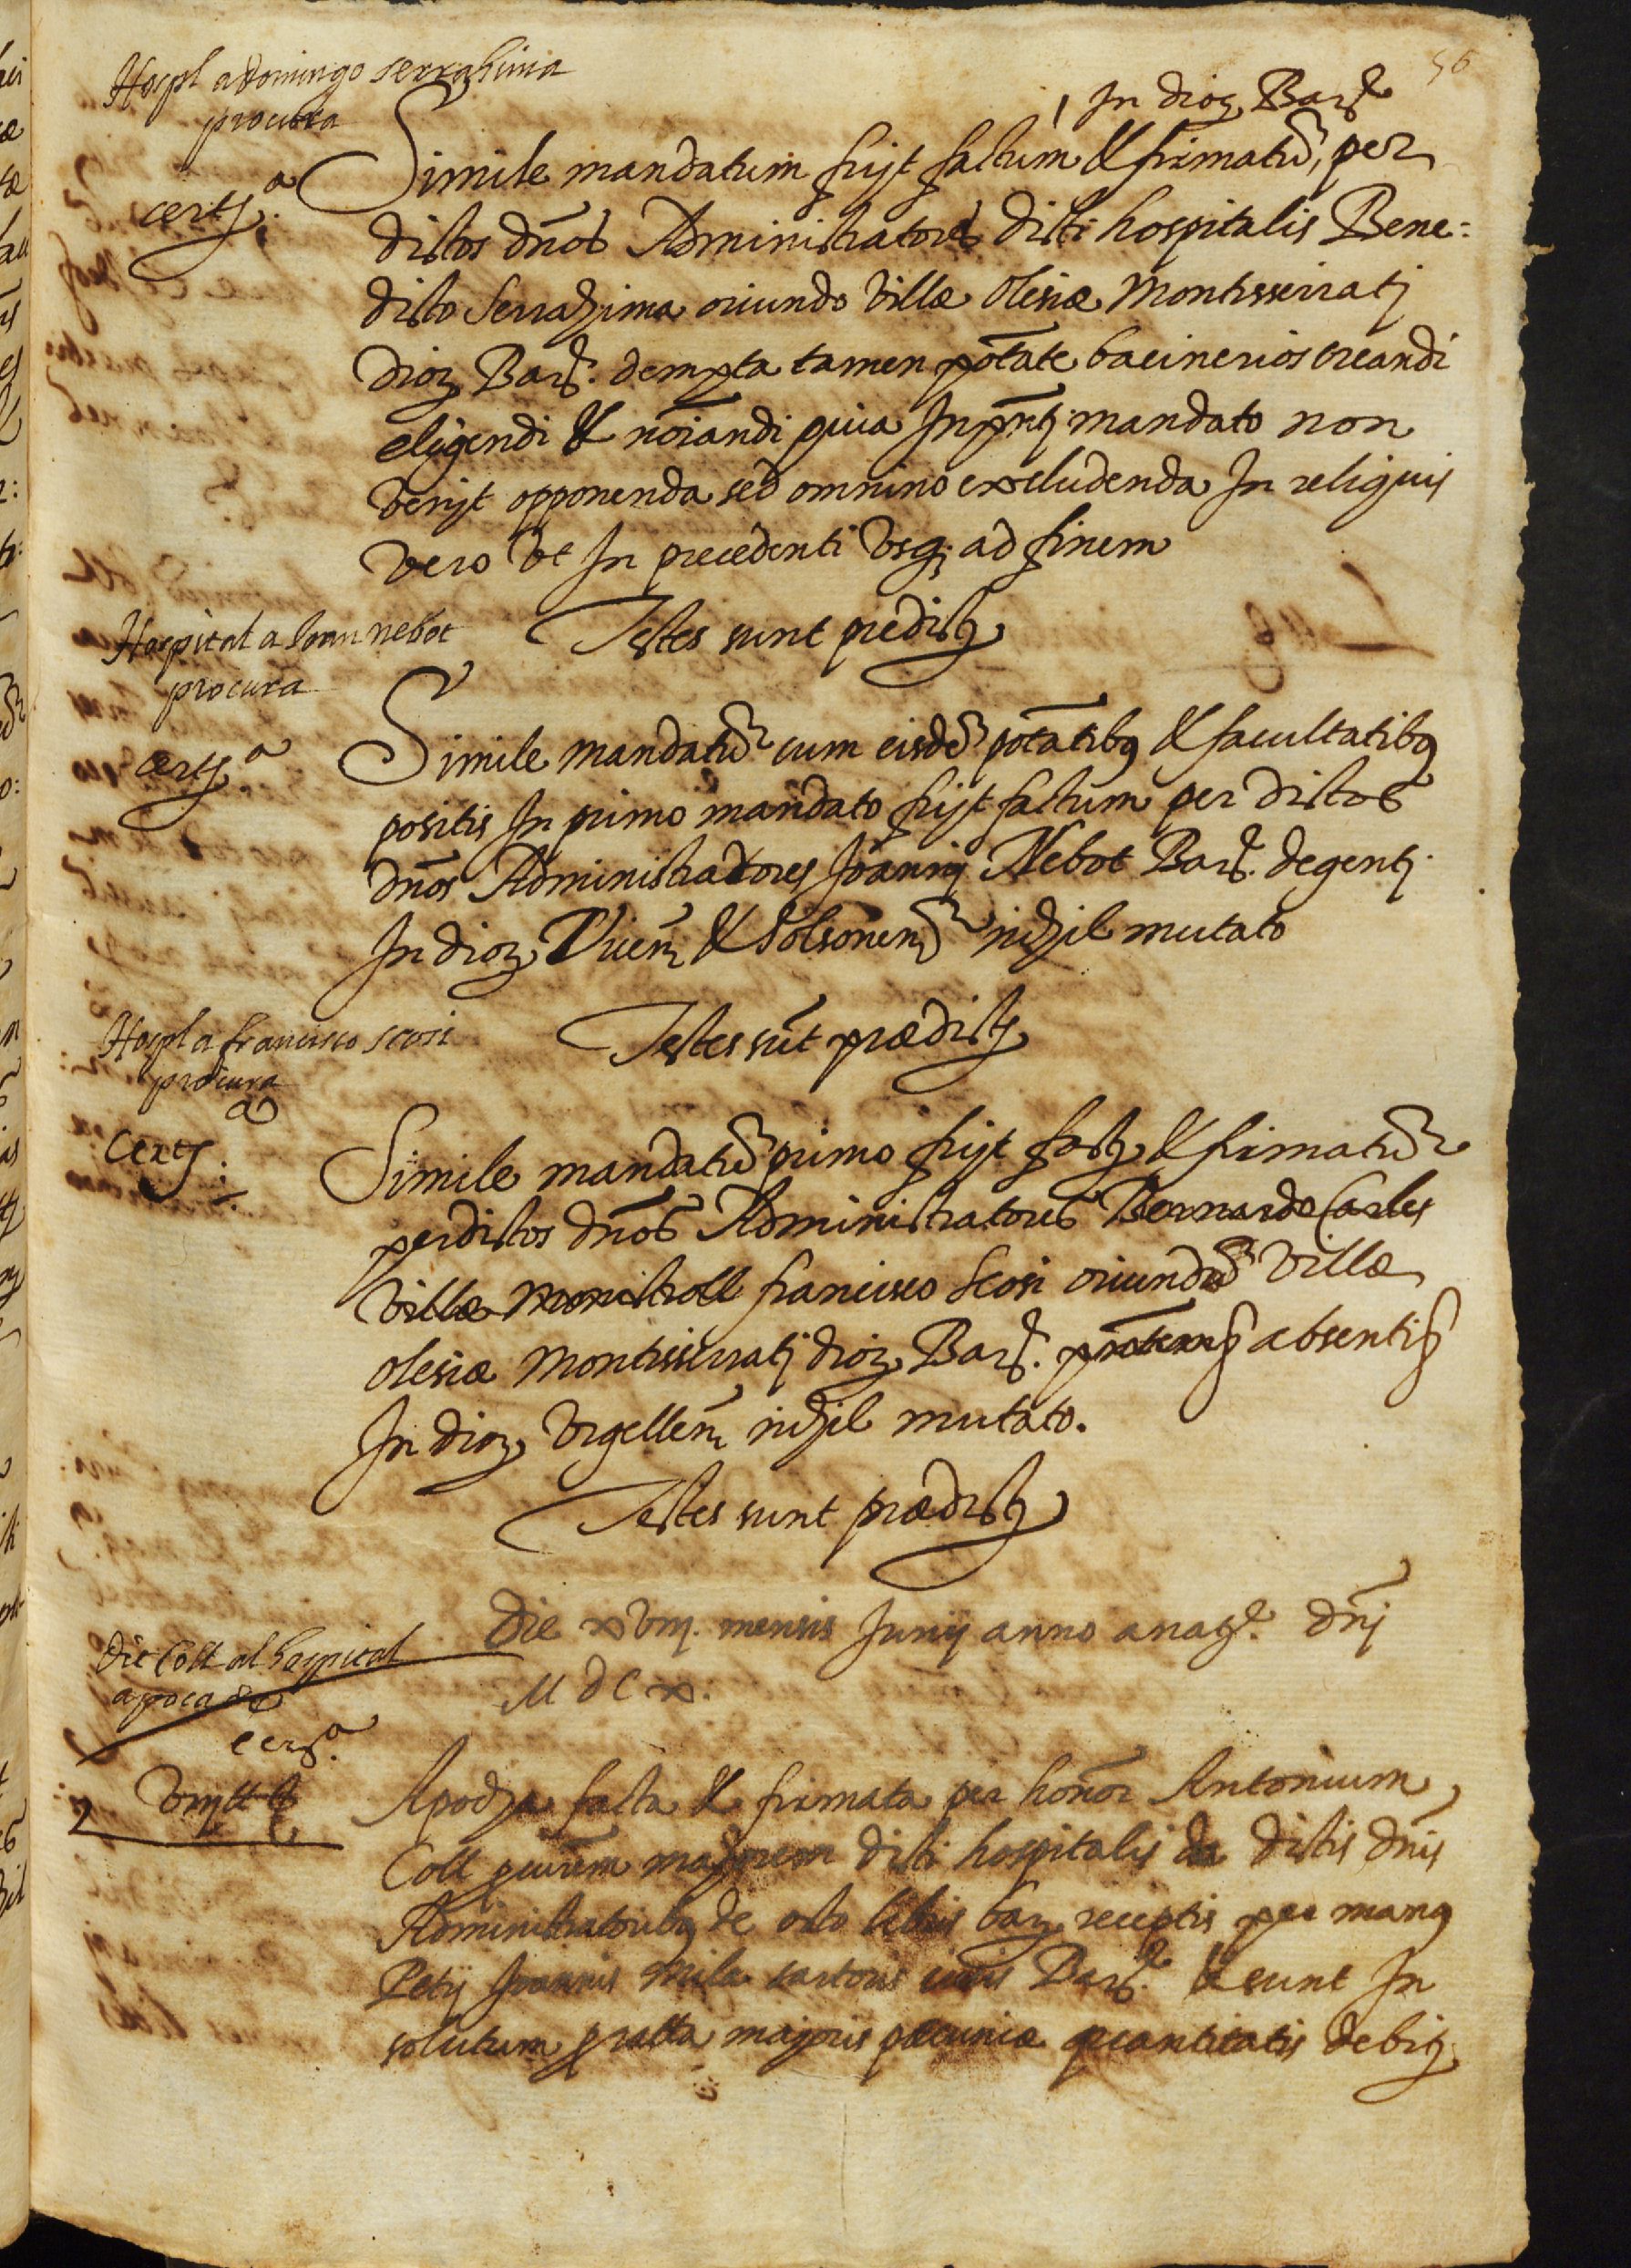 56
Hospl a Domingo serrahima
procura
certf.ª
In dioz Barñ
Simile mandatum fuyt factum & firmatũ, per
dictos dños Administratores dicti hospitalis Bene=
dicto Serrahima oriundo villæ olesiæ Montisserratj
dioz Barñ. dempta tamen põtate bacinerios creandi
eligendi & nõiandi quia In pñtj mandato non
venyt opponenda sed omnino excludenda In reliquis
vero vt In precedenti vsq; ad finem
Testes sunt predictj
Hospital a Joan nebot
procura
certf.ª
Simile mandatũ cum eisdẽ põtatibq & facultatibq
positis In primo mandato fuyt factum per dictos
dños Administradores Joannj Nebot Barñ. degentj
In dioz Vicen̄ & Solsonen̄ nihil mutato
Testes sũt prædictj
Hospl a francisco scosi
procura
certf.ª
Simile mandatũ primo fuyt factũ & firmatũ
per dictos dños Administratores Bernardo Carles
villæ Monistroll francisco Scosi oriundũ villæ
olesiæ Montisserratj dioz Barñ. absentis
In dioz Vrgellen̄ nihil mutato.
Testes sunt prædictj
Die xviij. mensis Junij anno a natẽ. dñj
M dC x.
De Coll al hospital
apoca de
certf.ª
viij ll
Apocha facta & firmata per honor Antonium
Coll dicti hospitalis de dictis dñis
Administratoribq de octo libris barz receptis per manq
Petrj Joannis Mila sartoris civis Barñ. & sunt In
solutum majoris pecuniæ quantitatis debitæ